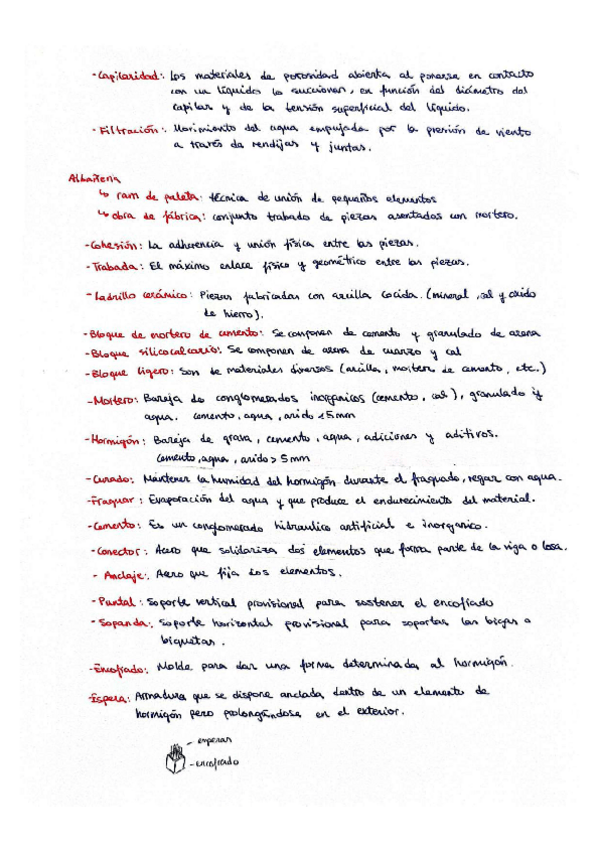 - Capilaridad: Los materiales de porosidad abierta al ponerse en contacto
con un líquido lo succionan, en función del diámetro del
capilar y de la tensión superficial del líquido.
- Filtración: Movimiento del agua empujada por la presión de viento
a través de rendijas y juntas.
Albañilería
↳ ram de paleta: técnica de unión de pequeños elementos
↳ obra de fábrica: conjunto trabado de piezas asentadas con mortero.
- Cohesión: La adherencia y unión física entre las piezas.
- Trabada: El máximo enlace físico y geométrico entre las piezas.
- Ladrillo cerámico: Piezas fabricadas con arcilla cocida. (mineral, cal y oxido
de hierro).
- Bloque de mortero de cemento: Se componen de cemento y granulado de arena
- Bloque silicocalcario: Se componen de arena de cuarzo y cal
- Bloque ligero: Son de materiales diversos (arcilla, mortero de cemento, etc.)
- Mortero: Bareja de conglomerados inorganicos (cemento, cal), granulado y
agua. cemento, agua, arido < 5mm
- Hormigón: Bareja de grava, cemento, agua, adiciones y aditivos.
cemento, agua, arido > 5mm
- Curado: Mantener la humedad del hormigón durante el fraguado, regar con agua.
- Fraguar: Evaporación del agua y que produce el endurecimiento del material.
- Cemento: Es un conglomerado hidraulico artificial e inorganico.
- Conector: Acero que solidariza dos elementos que forma parte de la viga o losa.
- Anclaje: Acero que fija dos elementos.
- Puntal: Soporte vertical provisional para sostener el encofrado
- Sopanda: Soporte horizontal provisional para soportar las bigas o
biguetas.
- Encofrado: Molde para dar una forma determinada al hormigón.
- Espera: Armadura que se dispone anclada dentro de un elemento de
hormigón pero prolongándose en el exterior.
- esperas
- encofrado